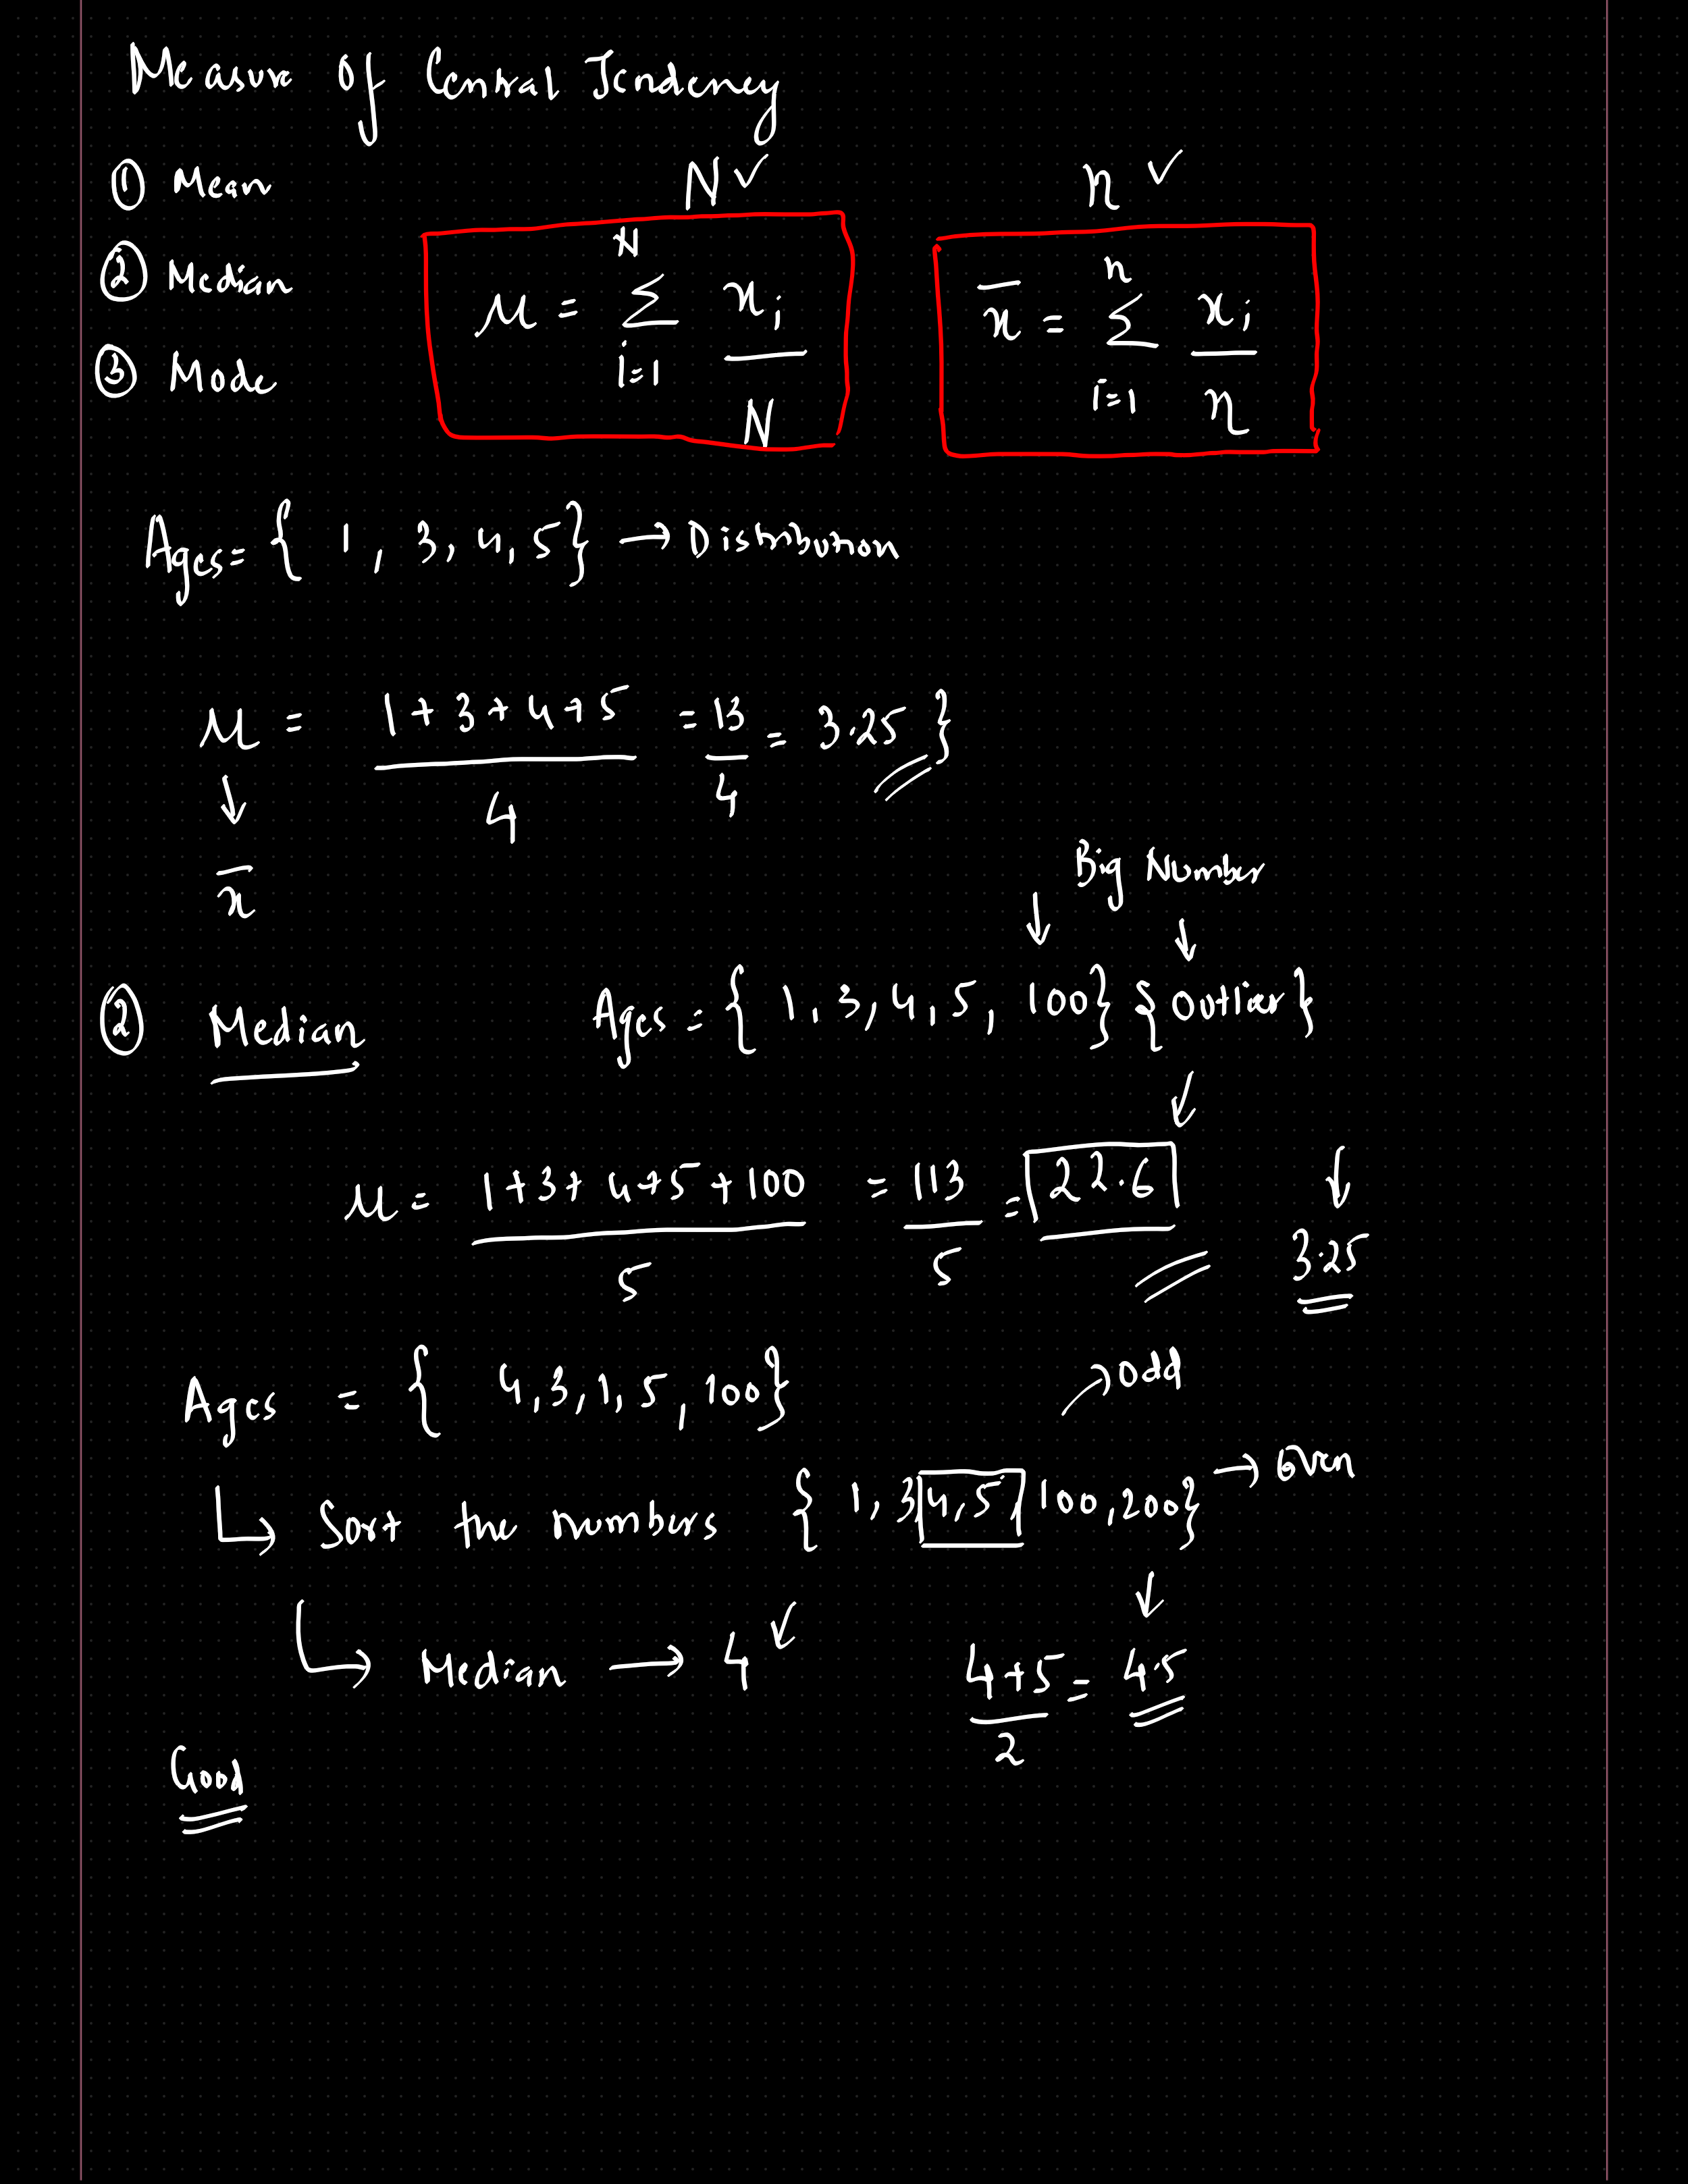 Measure Of Central Tendency
① Mean N ✓ n ✓
② Median
③ Mode
μ = N Σ i=1 xi / N
x̄ = n Σ i=1 xi / n
Ages = { 1, 3, 4, 5} → Distribution
μ = 1+3+4+5 / 4 = 13 / 4 = 3.25 }
↓
x̄
Big Number
↓ ↓
② Median Ages = { 1, 3, 4, 5, 100} { Outlier }
↙
μ = 1+3+4+5+100 / 5 = 113 / 5 = 22.6 ↓ 3.25
Ages = { 4, 3, 1, 5, 100} → Odd
↳ Sort the numbers { 1, 3, 4, 5, 100, 200} → Even
↳ Median → 4 ↙ ↓
4+5 / 2 = 4.5
Good